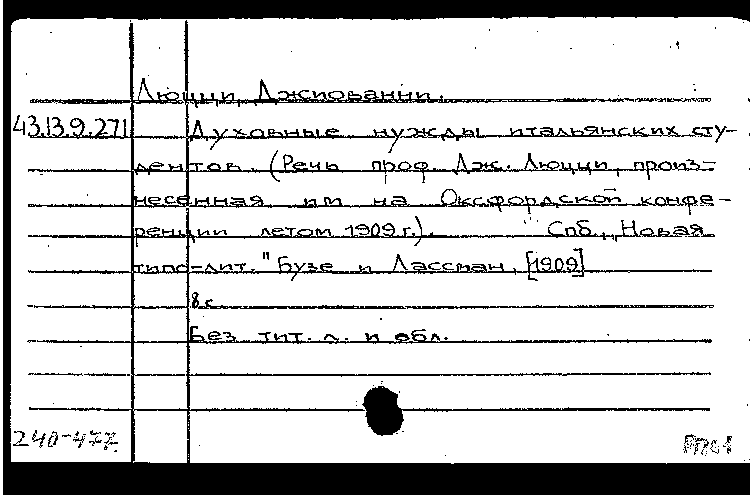 Люцци, Джиованни.
43.13.9.271 Духовные нужды итальянских сту-
дентов. (Речь проф. Дж. Люцци, произ-
несенная им на Оксфордской конфе-
ренции летом 1909 г.). Спб., "Новая
типо-лит." Бузе и Лассман, [1909]
8 с.
Без тит. л. и обл.
240-477.